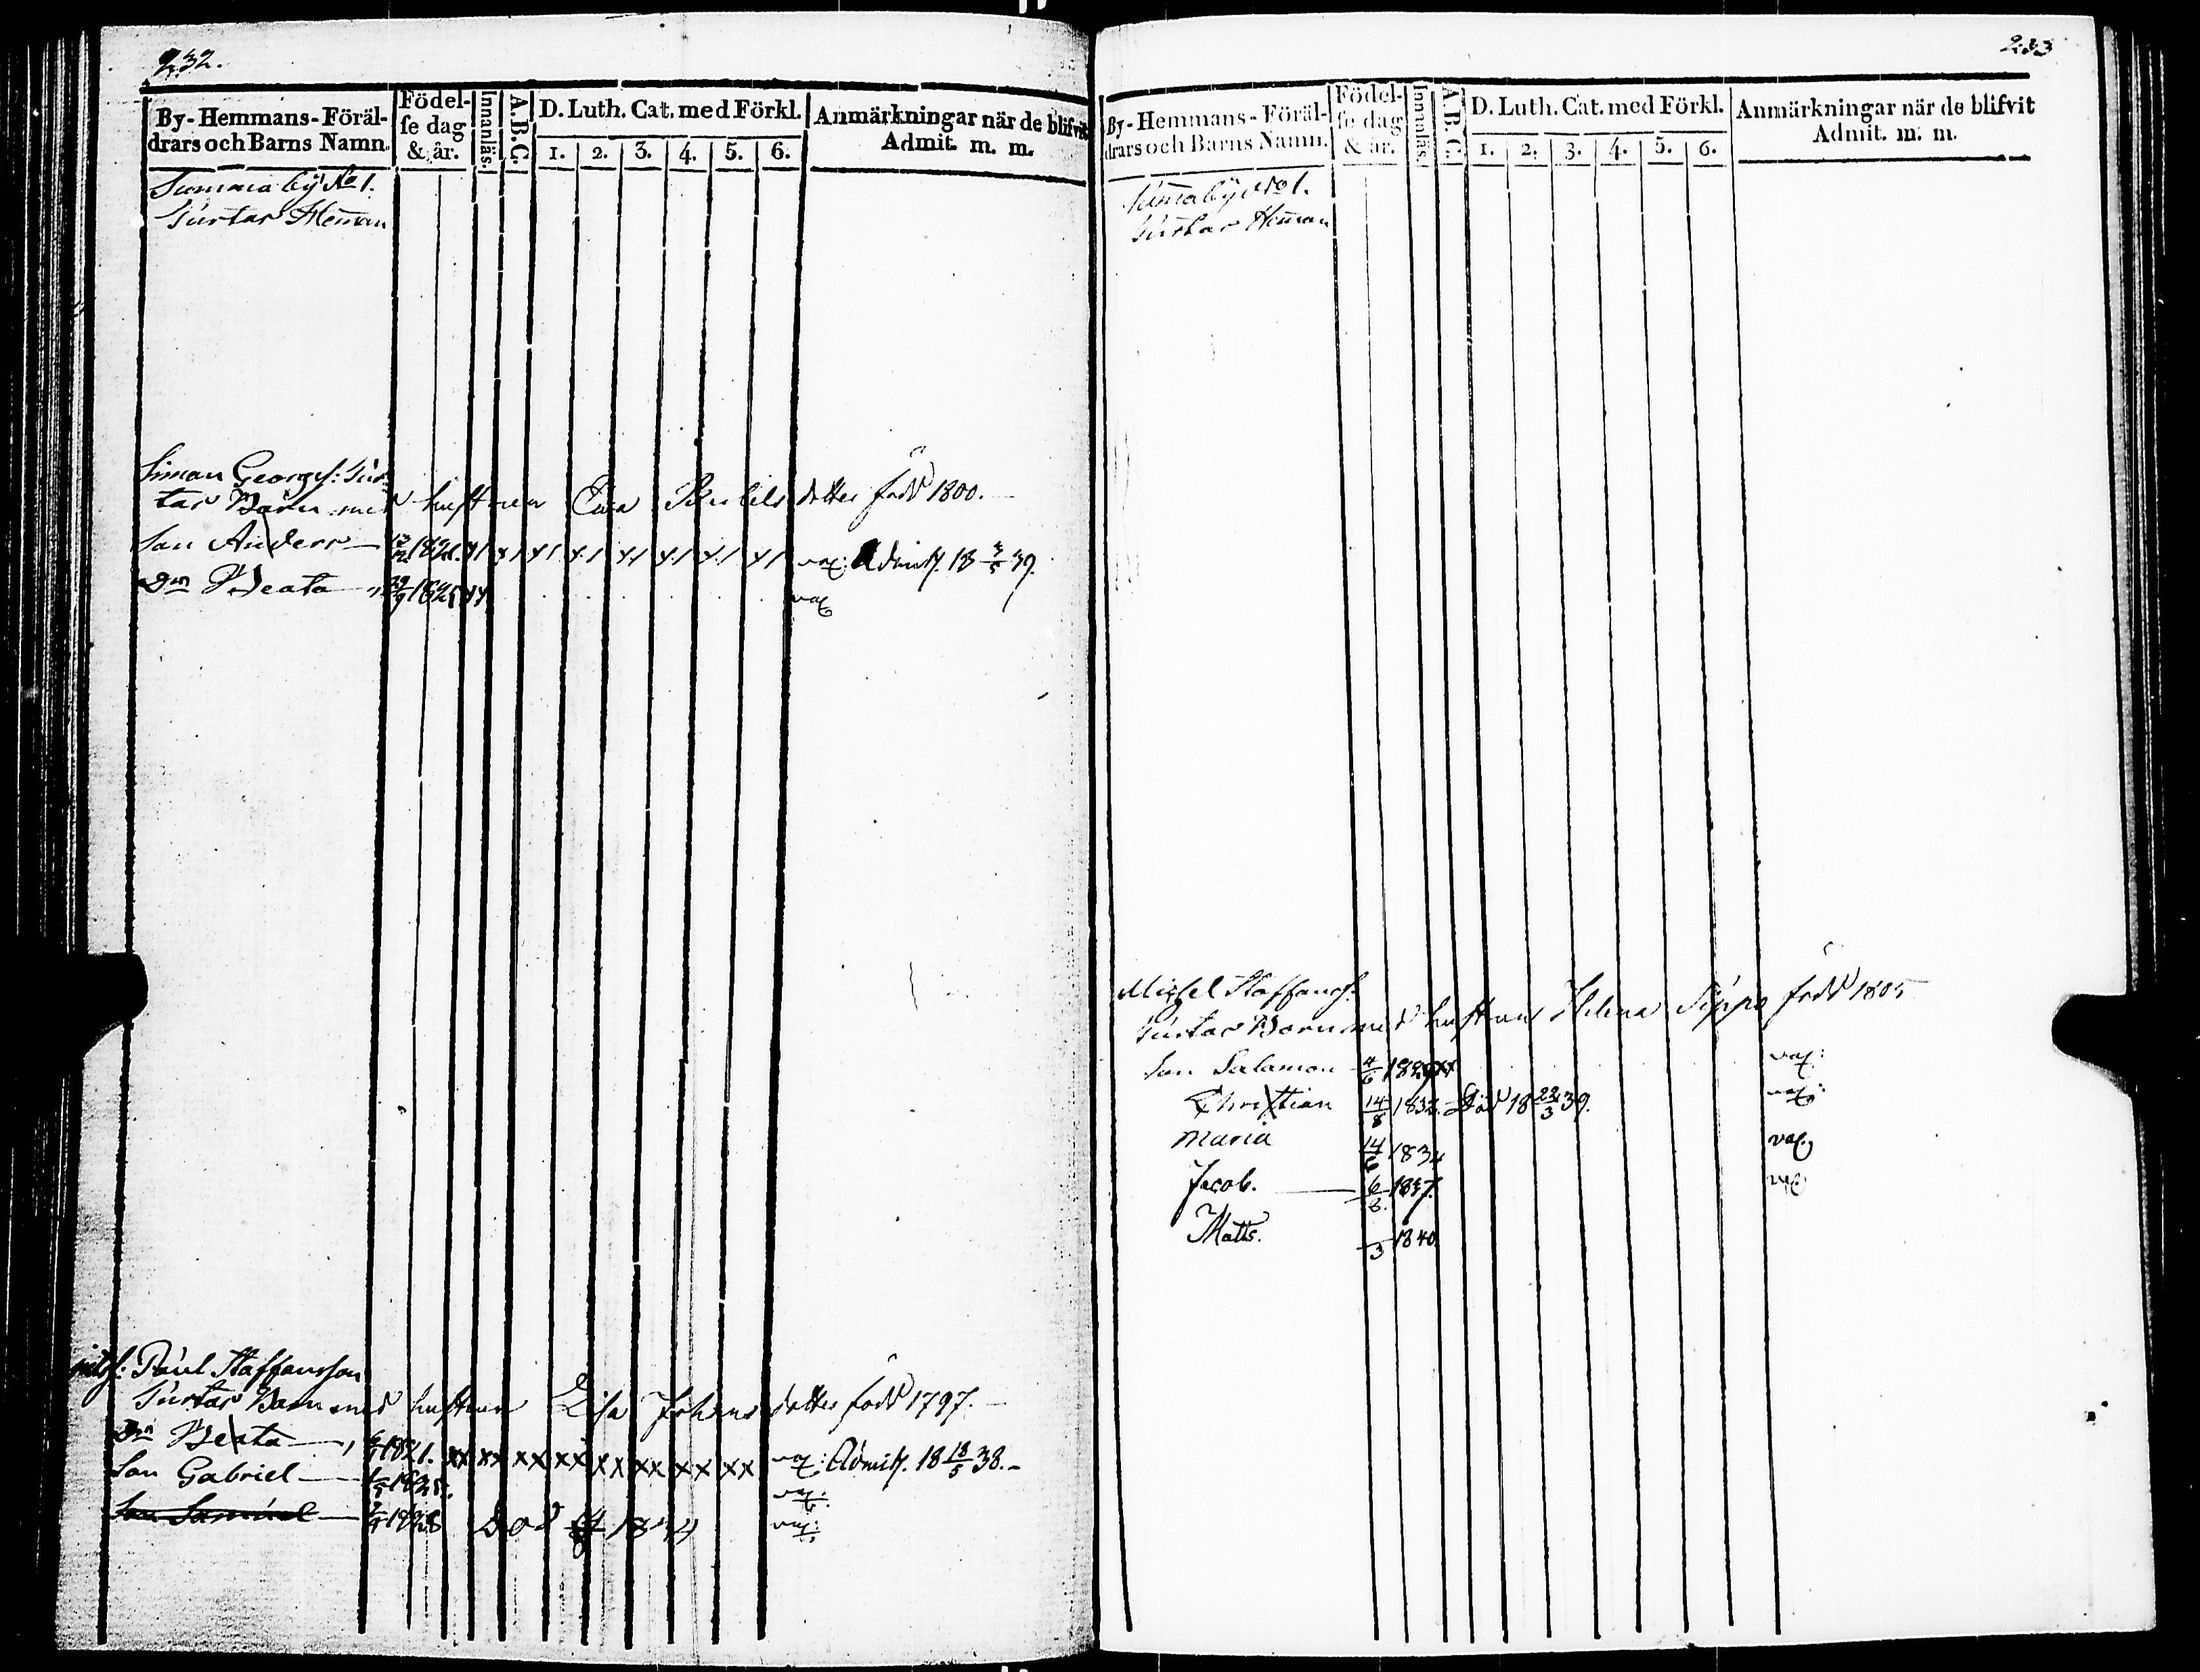 232.
By-Hemmans-Föräl-
drars och Barns Namn.
Födel-
se dag
& år.
Innanläs.
A.B.C.
D. Luth. Cat. med Förkl.
1. 2. 3. 4. 5. 6.
Anmärkningar när de blifvit
Admit. m. m.
Summa by No 1.
Gustas Heman
Simon Georgs: Gus-
tas Barn med hustrun Eva Bertils dotter född 1800.
Son Anders 13/12 18 vax: Admitt. 18 3/5 39.
Dr Beata 29/9 182 vax
Paul Staffansson
Gustas Barn med hustrun Lisa Johans dotter född 1797.
Dr Beata 1821. xx xx xx xx xx xx xx xx vax: Admitt. 18 18/5 38.
Son Gabriel 182 vax:
Son Samuel 1828 Död 18 4 vax:
233
By-Hemmans-Föräl-
drars och Barns Namn.
Födel-
se dag
& år.
Innanläs.
A.B.C.
D. Luth. Cat. med Förkl.
1. 2. 3. 4. 5. 6.
Anmärkningar när de blifvit
Admit. m. m.
Suma by No 1.
Gustas Heman
Michel Staffanss.
Gustas Barn med hustrun Helena Sippo född 1805
Son Salamon 4/6 1829 xx vax:
Christian 14/8 1832. Död 18 22/3 39. vax:
Maria 14/6 1834 vax
Jacob. 6/8. 1837. vax
Matts. /3 1840.